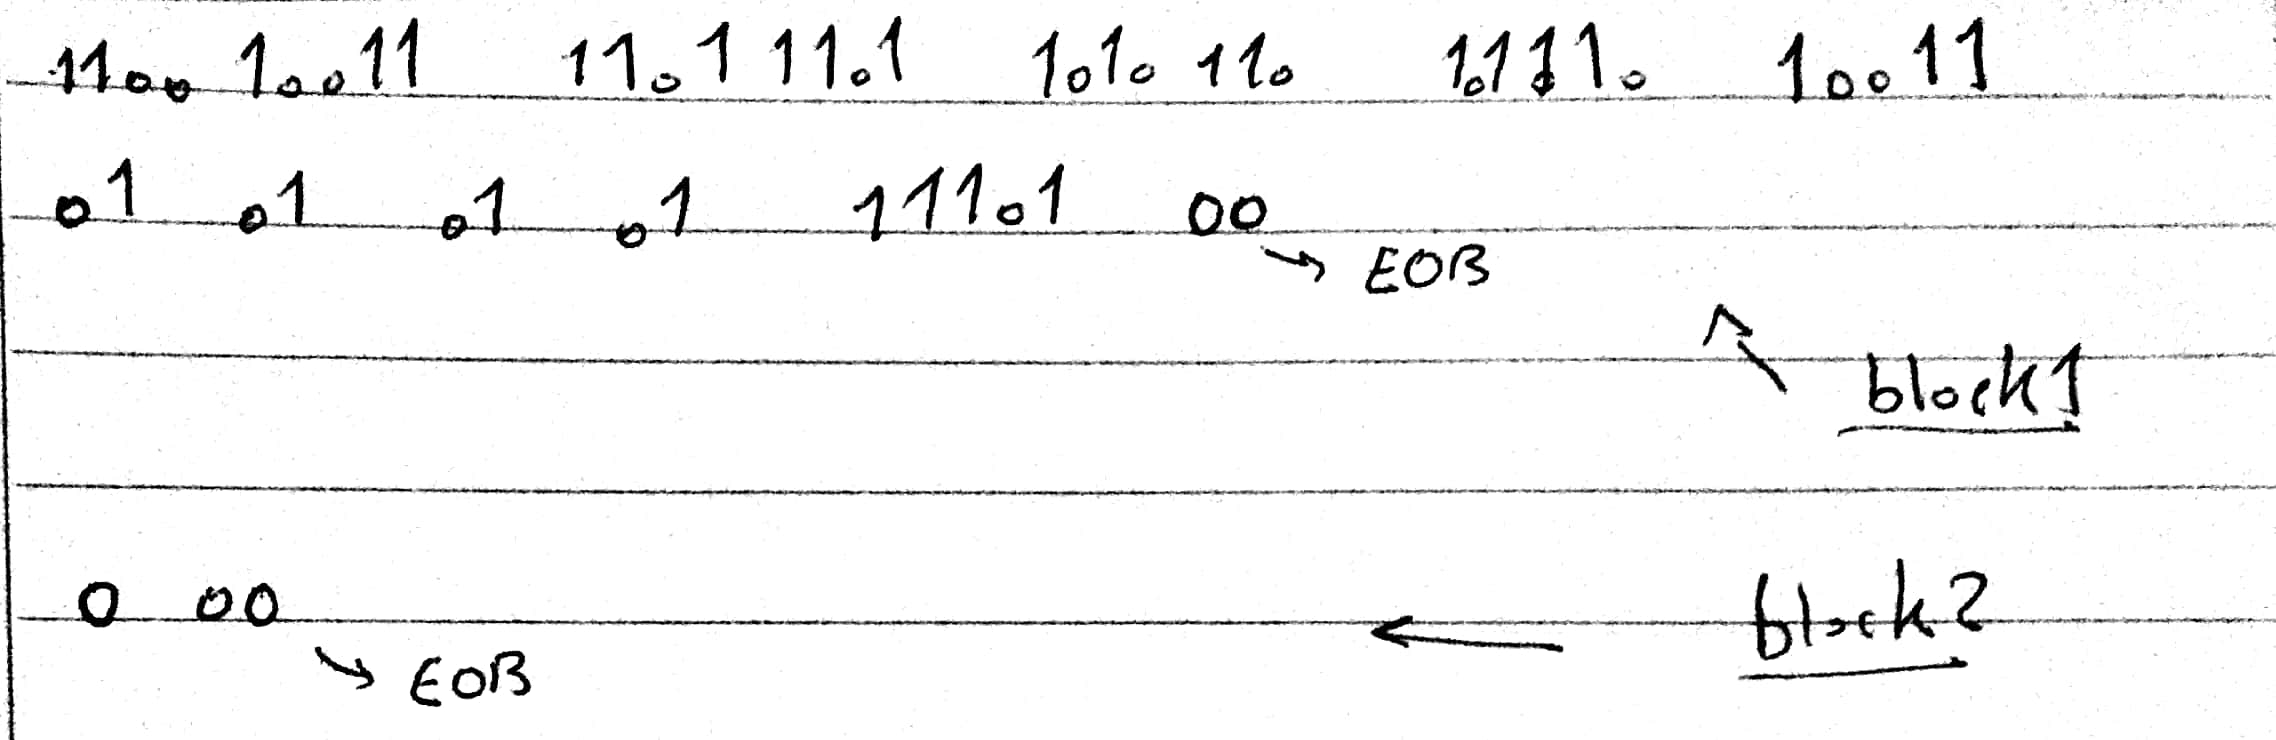 1100 10011 1101 1101 1010 110 101110 10011
01 01 01 01 11101 00
→ EOB
block1
0 00 ← block2
→ EOB